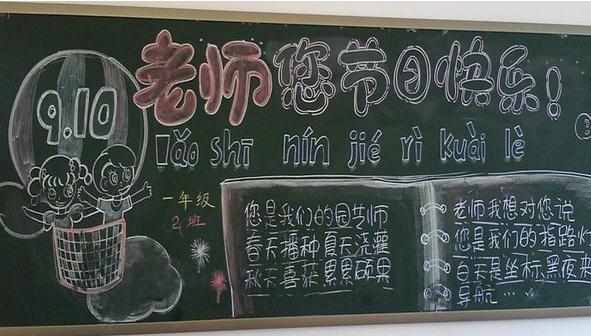 9.10
老师您节日快乐!
lǎo shī nín jié rì kuài lè
一年级
2班
您是我们的园艺师
春天播种夏天浇灌
秋天喜获累累硕果
老师我想对您说
您是我们的指路灯
白天是坐标黑夜来
导航…